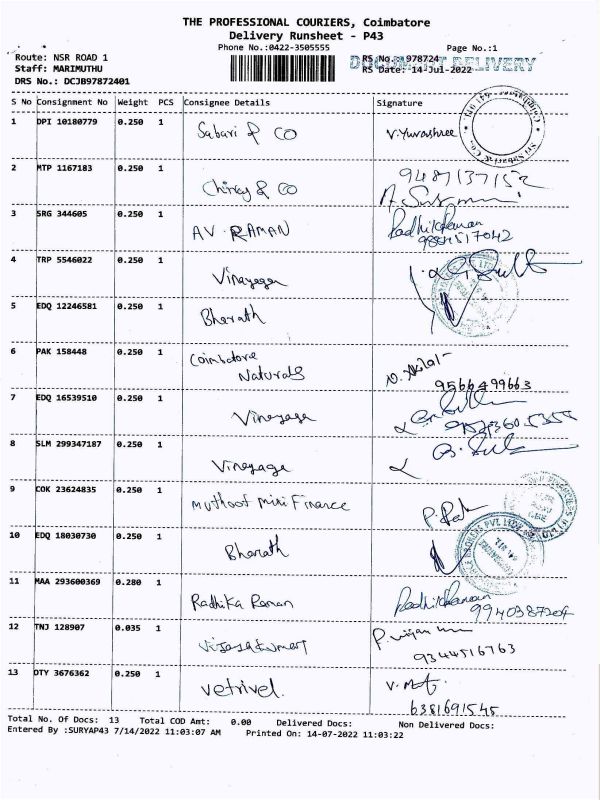 THE PROFESSIONAL COURIERS, Coimbatore
Delivery Runsheet - P43
Phone No.:0422-3505555 Page No.:1
Route: NSR ROAD 1 RS No. 978724
Staff: MARIMUTHU RS Date: 14-Jul-2022
DOCUMENT DELIVERY
DRS No.: DCJB97872401
S No Consignment No Weight PCS Consignee Details Signature
1 DPI 10180779 0.250 1 Sabari & CO V.Yuvashree
2 MTP 1167183 0.250 1 Chirag & CO 9487137152
3 SRG 344605 0.250 1 AV RAMAN Radhika Raman
9884517042
4 TRP 5546022 0.250 1 Vinayaga
5 EDQ 12246581 0.250 1 Bharath
6 PAK 158448 0.250 1 Coimbatore
Naturals
9566499663
7 EDQ 16539510 0.250 1 Vinayaga
8 SLM 299347187 0.250 1 Vinayaga
9 COK 23624835 0.250 1 Muthoot Mini Finance
10 EDQ 18030730 0.250 1 Bharath
11 MAA 293600369 0.280 1 Radhika Raman Radhika Raman
9940387204
12 TNJ 128907 0.035 1 Vijayakumari
9344516763
13 DTY 3676362 0.250 1 Vetrivel.
6381691545
Total No. Of Docs: 13 Total COD Amt: 0.00 Delivered Docs: Non Delivered Docs:
Entered By :SURYAP43 7/14/2022 11:03:07 AM Printed On: 14-07-2022 11:03:22